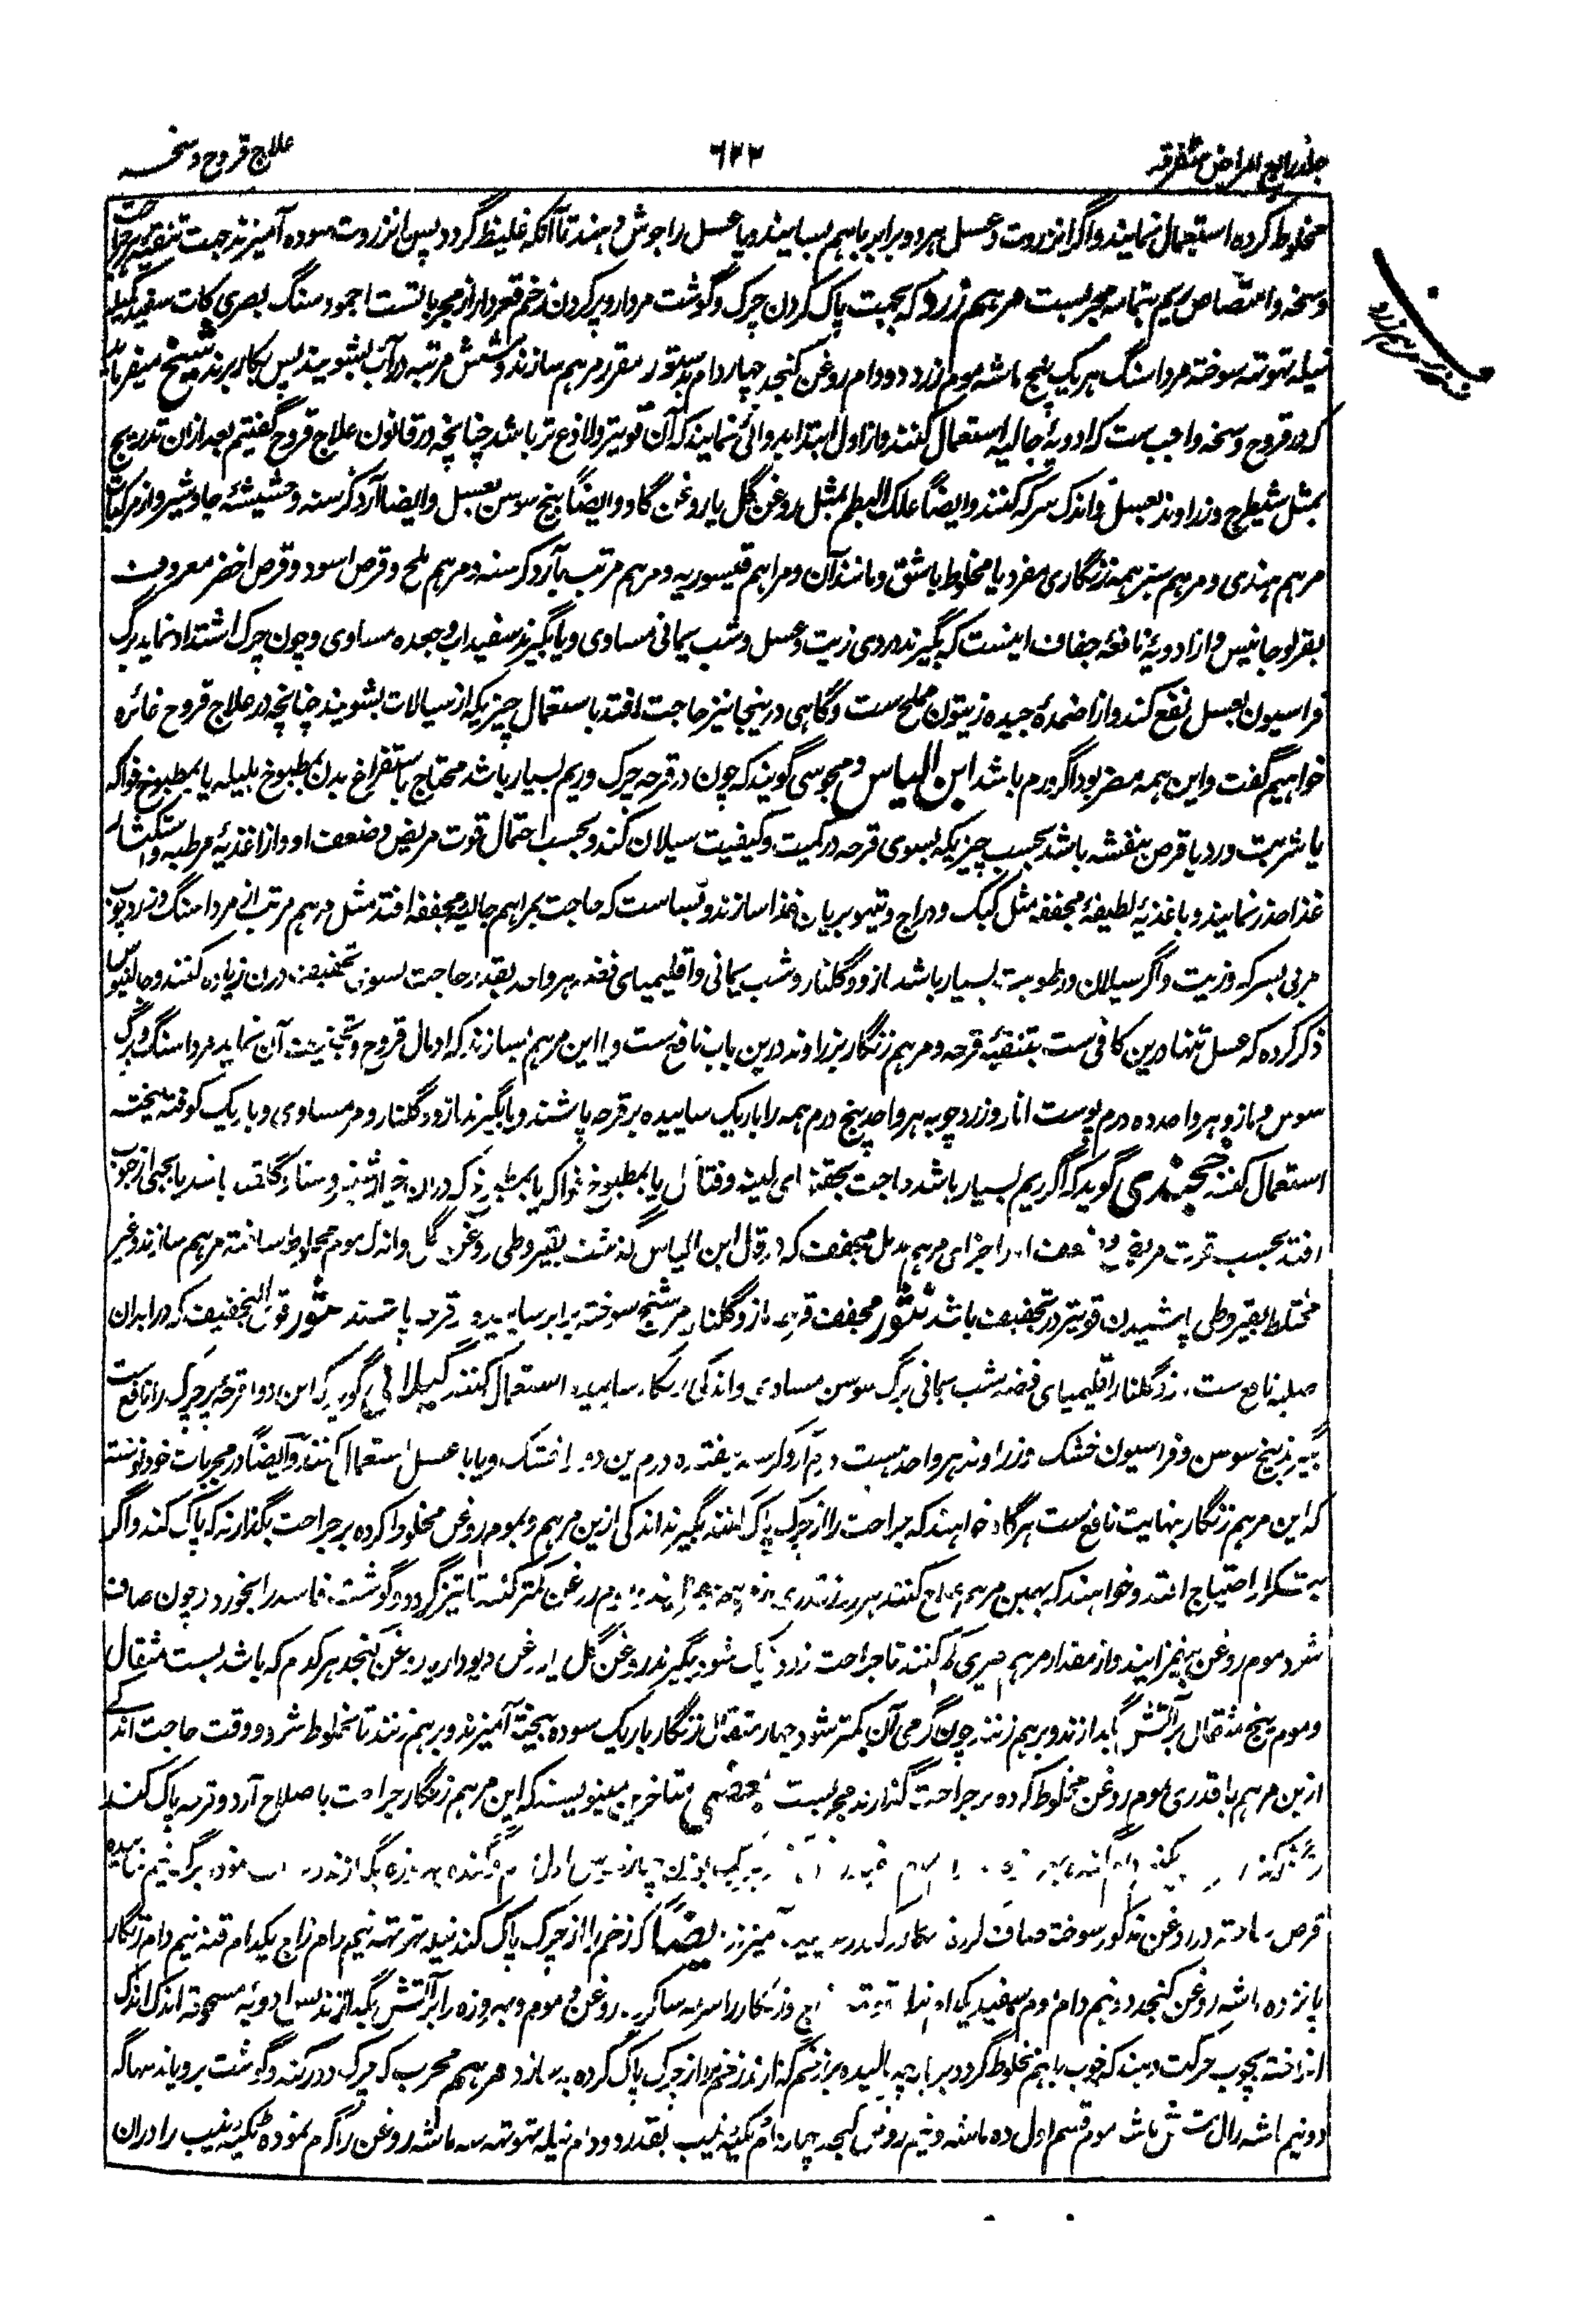 جلد رابع امراض متفرقه
۶۲۲
علاج قروح وسخه
مخلوط کرده استعمال نمایند واگر انزروت وعسل هر دو برابر باهم بسایند ویا عسل را جوش دهند تا آنکه غلیظ گردد پس انزروت سوده آمیزند جهت تنقیه جراحت
وسخه و ریم بتمامه مجربست مرهم زرد که بجهت پاک کردن چرک وگوشت مردار وپر کردن زخم قعردار از مجرباتست اجمود سنگ بصری کات سفید کمیله
نیله تهوتهه سوخته مرداسنگ هریک پنج ماشه موم زرد دو دام روغن کنجد چهار دام بدستور مقرر مرهم سازند وشش مرتبه در آب بشویند پس بکار برند شیخ میفرماید
که در قروح وسخه واجب ست که ادویهٔ جالیه استعمال کنند واز اول ابتدا بدوائی نمایند که آن قویتر ولاذع تر باشد چنانچه در قانون علاج قروح گفتیم بعد ازان بتدریج
بمثل شیطرج وزراوند بعسل واندک سرکه کنند وایضاً علک البطم بمثل روغن گل یا روغن گاو وایضاً بیخ سوسن بعسل وایضا آرد کرسنه وحشیشهٔ جاوشیر واز مرکبات
مرهم هندی ومرهم سبز همه زنگاری مفرد یا مخلوط باشق ومانند آن ومراهم قیسوریه ومرهم مرتب بآرد کرسنه ومرهم ملح وقرص اسود وقرص اخضر معروف
بقراوجانیس واز ادویهٔ نافعهٔ جفاف اینست که بگیرند دردی زیت وعسل وشب یمانی مساوی ویا بگیرند سفیداب وجعده مساوی وچون چرک اشتداد نماید برگ
فراسیون بعسل نفع کند واز اضمدهٔ جیده زیتون مملح ست وگاهی درینجا نیز حاجت افتد باستعمال چیزیکه از سیالات بشویند چنانچه در علاج قروح غائره
خواهیم گفت واین همه مضر بود اگر ورم باشد ابن الیاس ومجوسی گویند که چون در قرحه چرک وریم بسیار باشد محتاج باستفراغ بدن بمطبوخ هلیله یا بمطبوخ فواکه
یا شربت ورد یا قرص بنفشه باشد بحسب چیزیکه بسوی قرحه در کمیت وکیفیت سیلان کند وبحسب احتمال قوت مریض وضعف او واز اغذیهٔ مرطبه واستکثار
غذا حذر نمایند وباغذیهٔ لطیفهٔ مجففه مثل کبک ودراج وتیهو بریان غذا سازند وبساست که حاجت بمراهم جالیه ومجففه افتد مثل مرهم مرتب از مرداسنگ وزردچوبه
مربی بسرکه وزیت واگر سیلان ورطوبت بسیار باشد مازو وگلنار وشب یمانی واقلیمیای فضه هر واحد بقدر حاجت بسوی تجفیف دران زیاده کنند وجالینوس
ذکر کرده که عسل تنها درین کافی ست بتنقیهٔ قرحه ومرهم زنگار بزراوند درین باب نافع ست ویا این مرهم بسازند که ادمال قروح وتجفیف آن نماید مرداسنگ وبرگ
سوس ومازو هر واحد ده درم پوست انار وزردچوبه هر واحد پنج درم همه را باریک ساییده بر قرحه پاشند ویا بگیرند مازو وگلنار ومر مساوی وباریک کوفته بیخته
استعمال کنند خجندی گوید که اگر ریم بسیار باشد حاجت بحقنه ای لینه وفتائل یا بمطبوخ فواکه یا بمطبوخ که دران خیارشنبر وسنا باشد یا بحبی از حبوب
افتد بحسب قوت مریض وضعف او اجزای مرهم مدمل مجفف که در قول ابن الیاس گذشت بقیروطی روغن گل واندک موم مخلوط ساخته مرهم سازند وغیر
مختلط بقیروطی پاشیدن قویتر در تجفیف باشد نثور مجفف قرحه مازو وگلنار مر شنج سوخته برابر ساییده بر قرحه پاشند نثور قوی التجفیف که در ابدان
صلبه نافع ست مازو گلنار اقلیمیای فضه شب یمانی برگ سوسن مساوی واندکی زنگار ساییده استعمال کنند گیلانی گوید که این دوا قرحهٔ پرچرک را نافع ست
بگیرند بیخ سوسن وفراسیون خشک وزراوند هر واحد بیست درم آرد کرسنه هفتده درم ویا با عسل استعمال کنند وایضاً در مجربات خود نوشته
که این مرهم زنگار بنهایت نافع ست هرگاه خواهند که جراحت را از چرک پاک کنند بگیرند اندکی ازین مرهم وبموم روغن مخلوط کرده بر جراحت بگذارند که پاک کند واگر
بتکرار احتیاج افتد وخواهند که بهمین مرهم علاج کنند هر روز قدری موم روغن کمتر کنند تا تیز گردد وگوشت فاسد را بخورد وچون صاف
شود موم روغن بیفزایند واز مقدار مرهم کم کنند تا جراحت زود پاک شود بگیرند روغن گل یا روغن دیودار یا روغن کنجد هر کدام که باشد بست مثقال
وموم پنج مثقال بر آتش بگدازند وبرهم زنند چون گرمی آن کمتر شود چهار مثقال زنگار باریک سوده بیخته آمیزند وبرهم زنند تا مخلوط شود ووقت حاجت اندکے
ازین مرهم با قدری موم روغن مخلوط کرده بر جراحت گذارند مجربست بعضی متاخرین مینویسند که این مرهم زنگار جراحت باصلاح آرد وقرحه پاک کند
قرص ساخته در روغن مذکور سوخته صاف کرده آمیزند ایضاً که زخم را از چرک پاک کند نیله تهوتهه نیم دام زاج یکدام قنه نیم دام زنگار
پانزده ماشه روغن کنجد دو نیم دام موم سفید یک زاج وزنگار را سرمه سا کرده روغن وموم وبهروزه را بر آتش بگدازند پس ادویه مسحوقه اندک اندک
انداخته بچوب حرکت دهند که خوب باهم مخلوط گردد بر پارچه مالیده بر زخم گذارند زخم را از چرک پاک کرده به سازد مرهم مجرب که چرک دور کند وگوشت برویاند سهاگه
دو نیم ماشه رال شش ماشه موم قسم اول ده ماشه ونیم روغن کنجد چهار دام تکیه نیب بقدر دو دام نیله تهوتهه سه ماشه روغن را گرم نموده تکیه نیب را دران